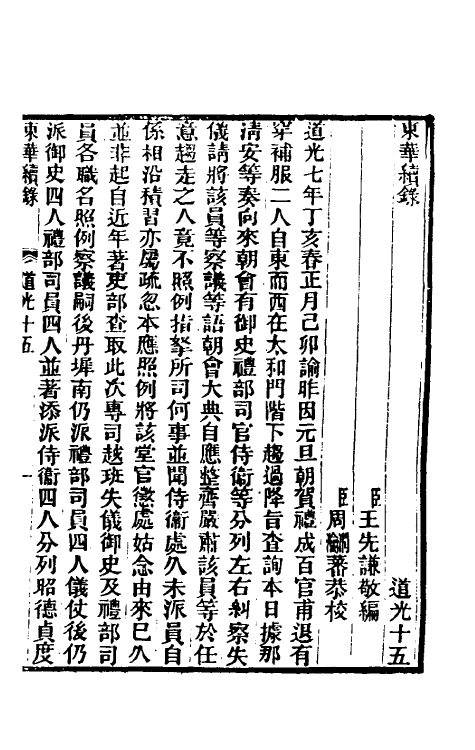 東華續錄 道光十五
臣王先謙敬編
臣周瀹蕃恭校
道光七年丁亥春正月己卯諭昨因元旦朝賀禮成百官甫退有
穿補服二人自東而西在太和門階下趨過降旨查詢本日據那
清安等奏向來朝會有御史禮部司官侍衞等分列左右糾察失
儀請將該員等察議等語朝會大典自應整齊嚴肅該員等於任
意趨走之人竟不照例指拏所司何事並聞侍衞處久未派員自
係相沿積習亦屬疏忽本應照例將該堂官懲處姑念由來已久
並非起自近年著吏部查取此次專司越班失儀御史及禮部司
員各職名照例察議嗣後丹墀南仍派禮部司員四人儀仗後仍
派御史四人禮部司員四人並著添派侍衞四人分列昭德貞度
東華續錄 道光十五 一